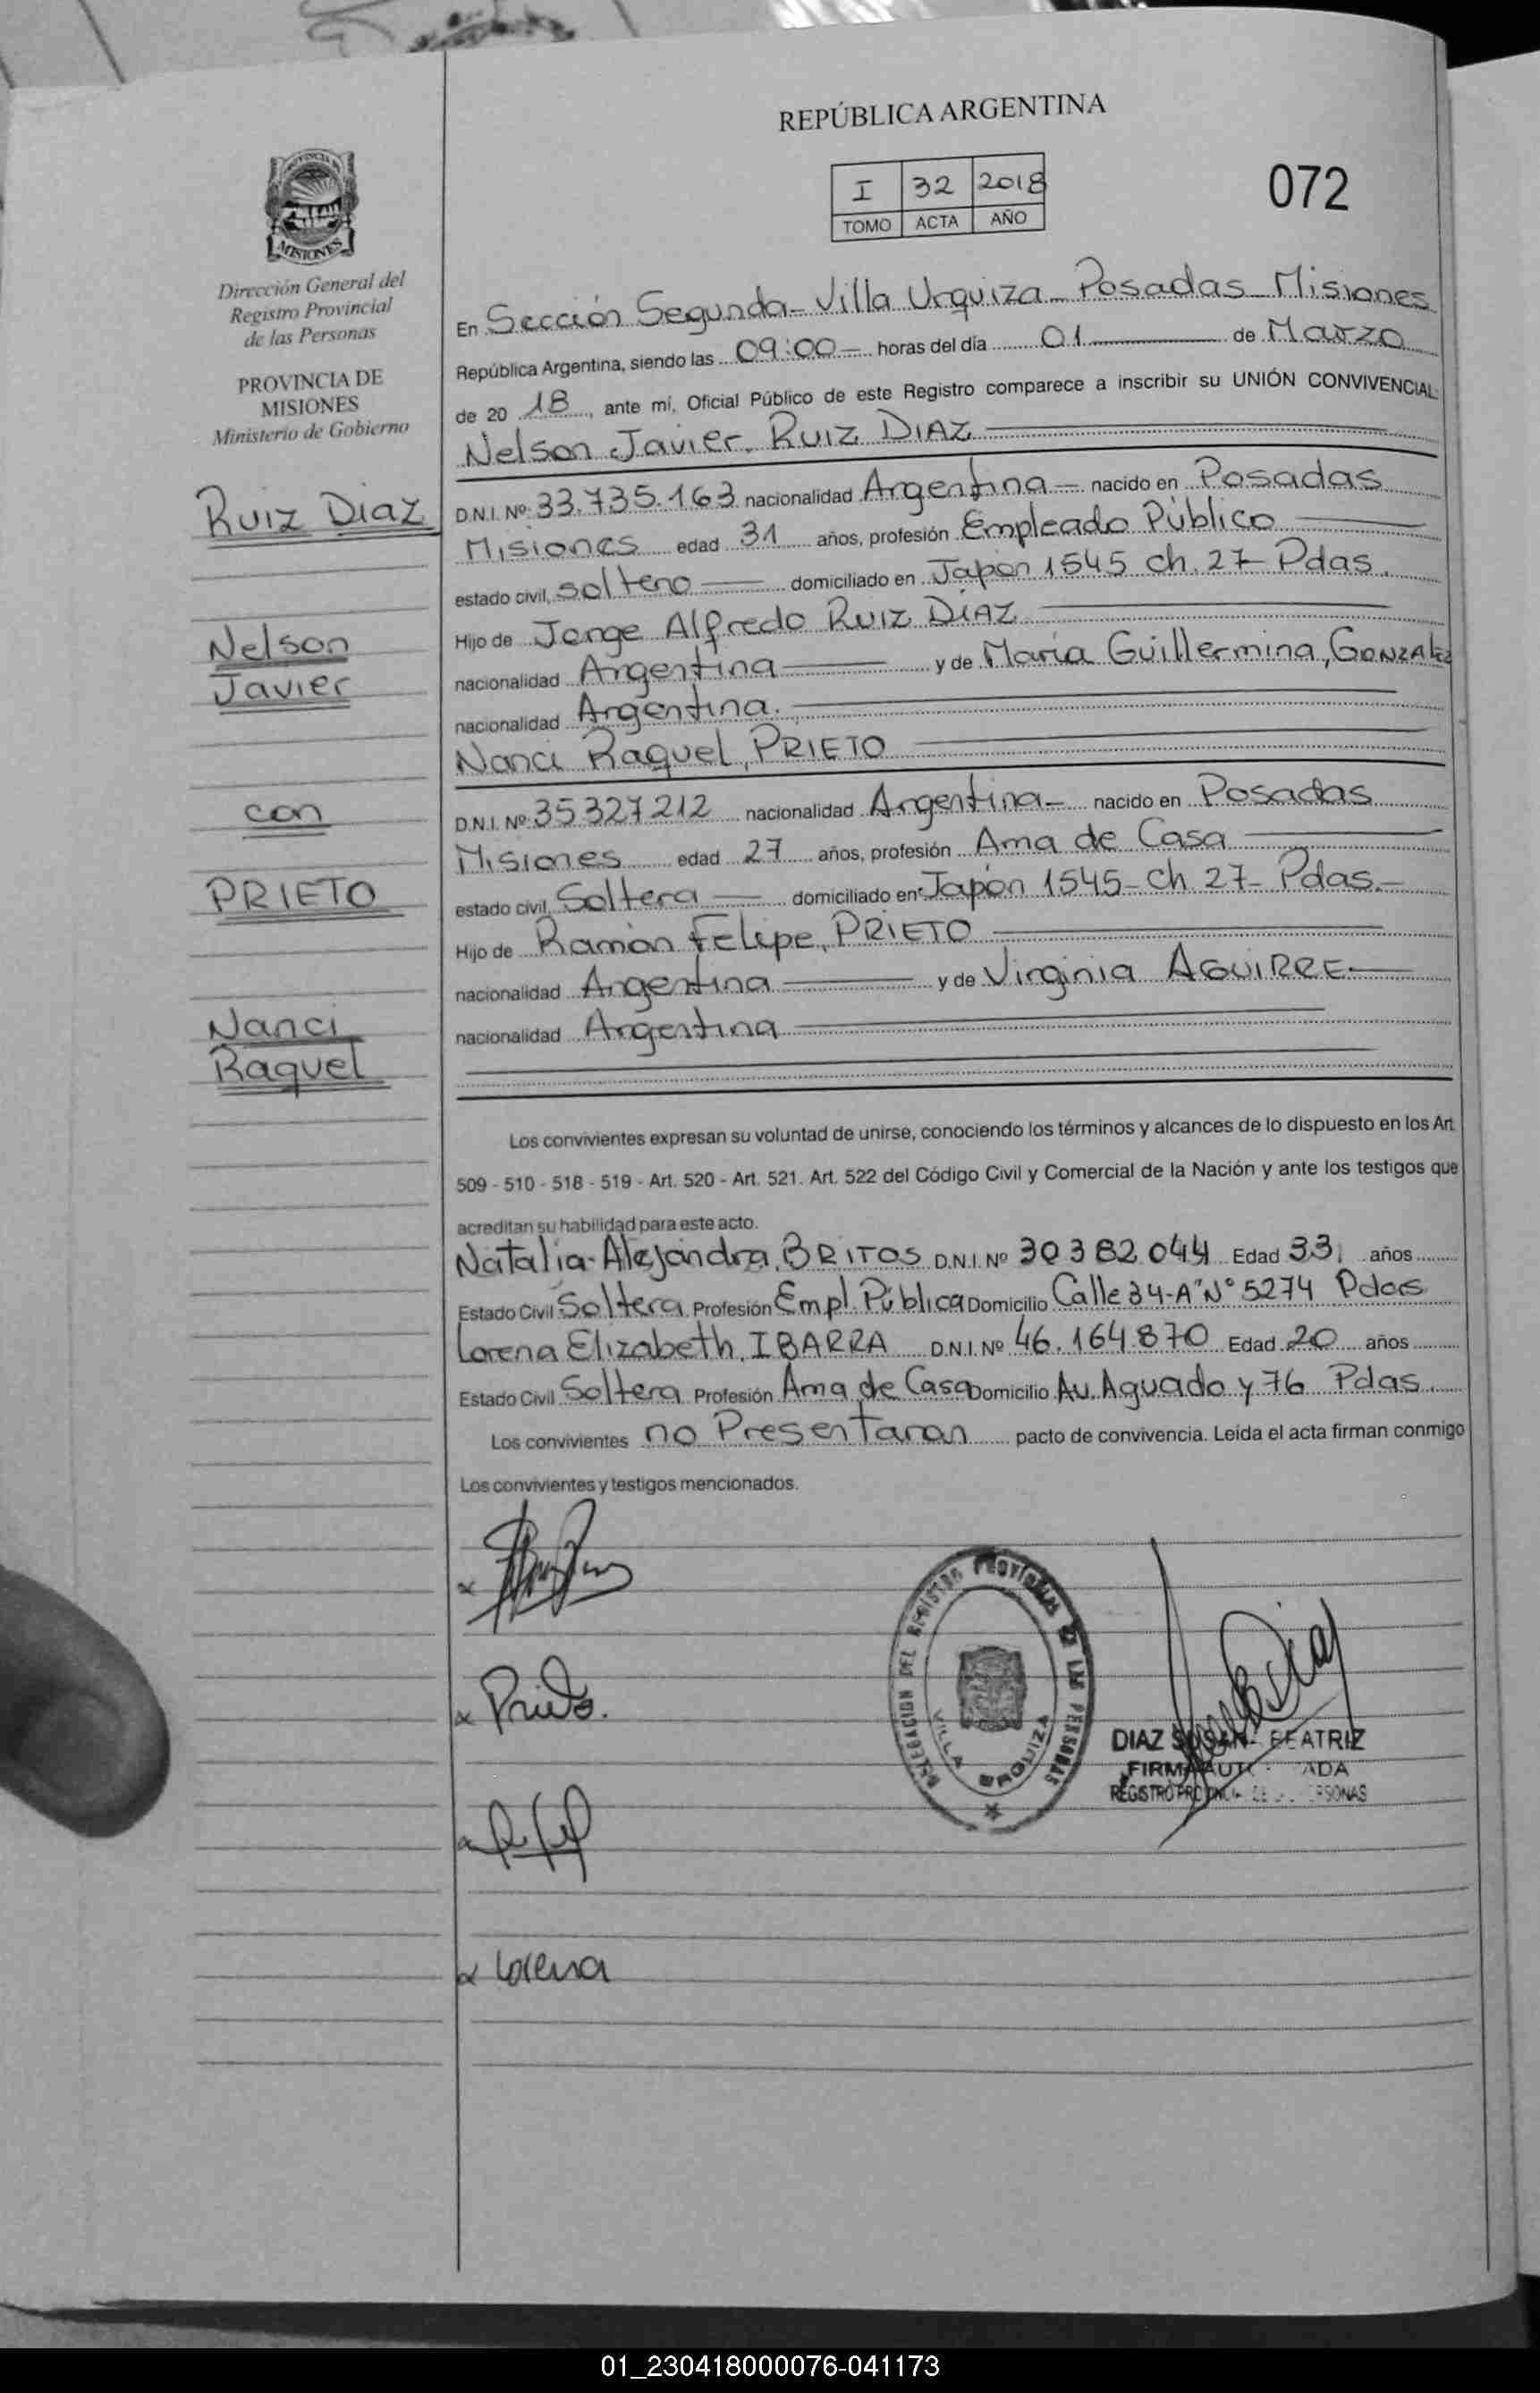 REPÚBLICA ARGENTINA
I 32 2018
TOMO ACTA AÑO
072
MISIONES
Dirección General del
Registro Provincial
de las Personas
PROVINCIA DE
MISIONES
Ministerio de Gobierno
Ruiz Diaz
Nelson
Javier
con
PRIETO
Nanci
Raquel
En Sección Segunda - Villa Urquiza - Posadas - Misiones
República Argentina, siendo las 09:00 - horas del día 01 de Marzo
de 20 18, ante mí, Oficial Público de este Registro comparece a inscribir su UNIÓN CONVIVENCIAL:
Nelson Javier, RUIZ DIAZ
D.N.I. Nº: 33.735.163 nacionalidad Argentina - nacido en Posadas
Misiones edad 31 años, profesión Empleado Público
estado civil, soltero domiciliado en Japón 1545 ch. 27 - Pdas.
Hijo de Jorge Alfredo RUIZ DIAZ
nacionalidad Argentina y de María Guillermina, GONZALEZ
nacionalidad Argentina.
Nanci Raquel, PRIETO
D.N.I. Nº: 35327212 nacionalidad Argentina - nacido en Posadas
Misiones edad 27 años, profesión Ama de Casa
estado civil, Soltera domiciliado en Japón 1545 - ch 27 - Pdas. -
Hijo de Ramón Felipe, PRIETO
nacionalidad Argentina y de Virginia AGUIRRE
nacionalidad Argentina
Los convivientes expresan su voluntad de unirse, conociendo los términos y alcances de lo dispuesto en los Art.
509 - 510 - 518 - 519 - Art. 520 - Art. 521. Art. 522 del Código Civil y Comercial de la Nación y ante los testigos que
acreditan su habilidad para este acto.
Natalia Alejandra, BRITOS D.N.I. Nº 30382044 Edad 33 años
Estado Civil Soltera Profesión Empl. Pública Domicilio Calle 34-A"Nº 5274 Pdas
Lorena Elizabeth, IBARRA D.N.I. Nº 46.164.870 Edad 20 años
Estado Civil Soltera Profesión Ama de Casa Domicilio Av. Aguado y 76 Pdas.
Los convivientes no Presentaran pacto de convivencia. Leída el acta firman conmigo
Los convivientes y testigos mencionados.
x Prieto.
DELEGACION DEL REGISTRO PROVINCIAL DE LAS PERSONAS
VILLA URQUIZA
DIAZ SUSANA BEATRIZ
FIRMA AUTORIZADA
REGISTRO PROVINCIAL DE LAS PERSONAS
x Lorena
01_230418000076-041173